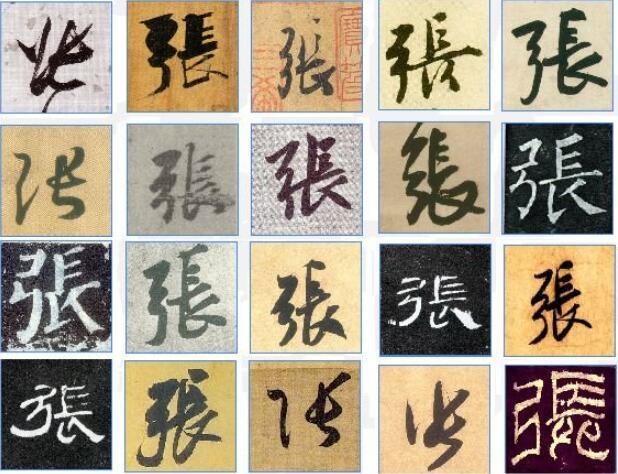 張 張 張 張 張
張 張 張 張 張
張 張 張 張 張
張 張 張 張 張